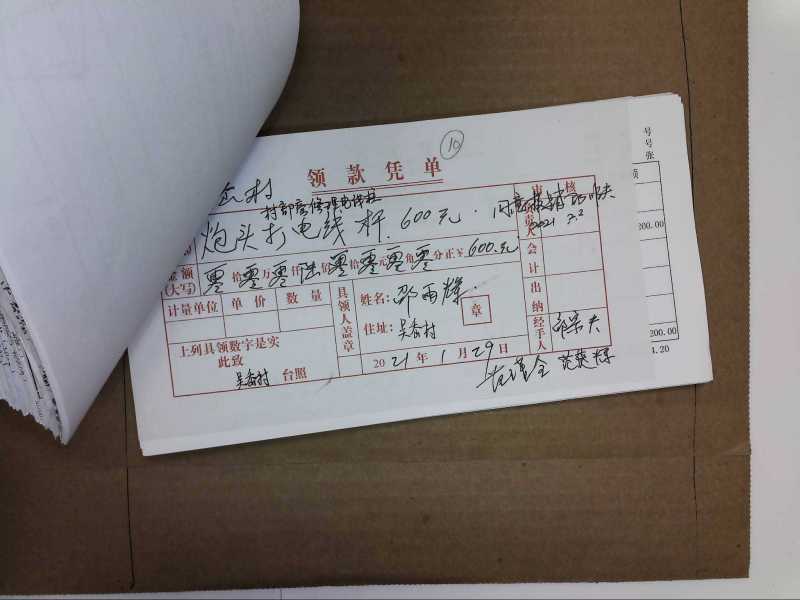 10
领款凭单
村
村部房修理电线柱
炮头打电线杆.600元.
审核
负责人
同意报销
2021 2.2
金额
(大写)
零拾零万零仟陆佰零拾零元零角零分正¥600.元
会计
计量单位 单价 数量
具领人盖章
姓名:邵雨辉
章
住址:吴斋村
出纳
上列具领数字是实
此致
吴斋村 台照
2021年1月29日
经手人
号
号
张
200.00
200.00
1.20